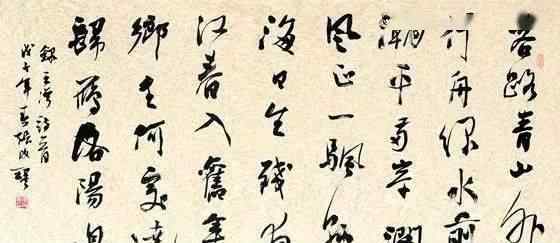 客路青山外
行舟綠水前
潮平兩岸闊
風正一颿
海日生殘
江春入舊年
鄉書何處達
歸雁洛陽
錄王灣詩一首
年夏